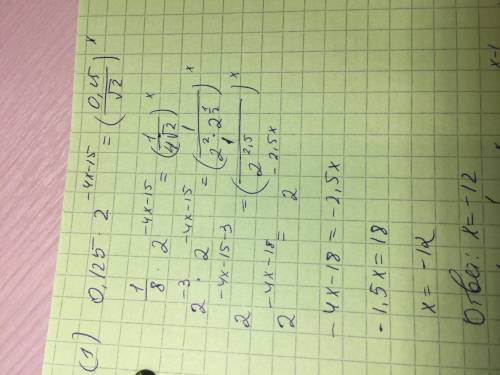 (1) 0,125 · 2^(-4x-15) = (0,25/√2)^x
1/8 · 2^(-4x-15) = (1/(4√2))^x
2^(-3) · 2^(-4x-15) = (1/(2^2 · 2^(1/2)))^x
2^(-4x-15-3) = (1/2^(2,5))^x
2^(-4x-18) = 2^(-2,5x)
-4x-18 = -2,5x
-1,5x = 18
x = -12
Ответ: x = -12